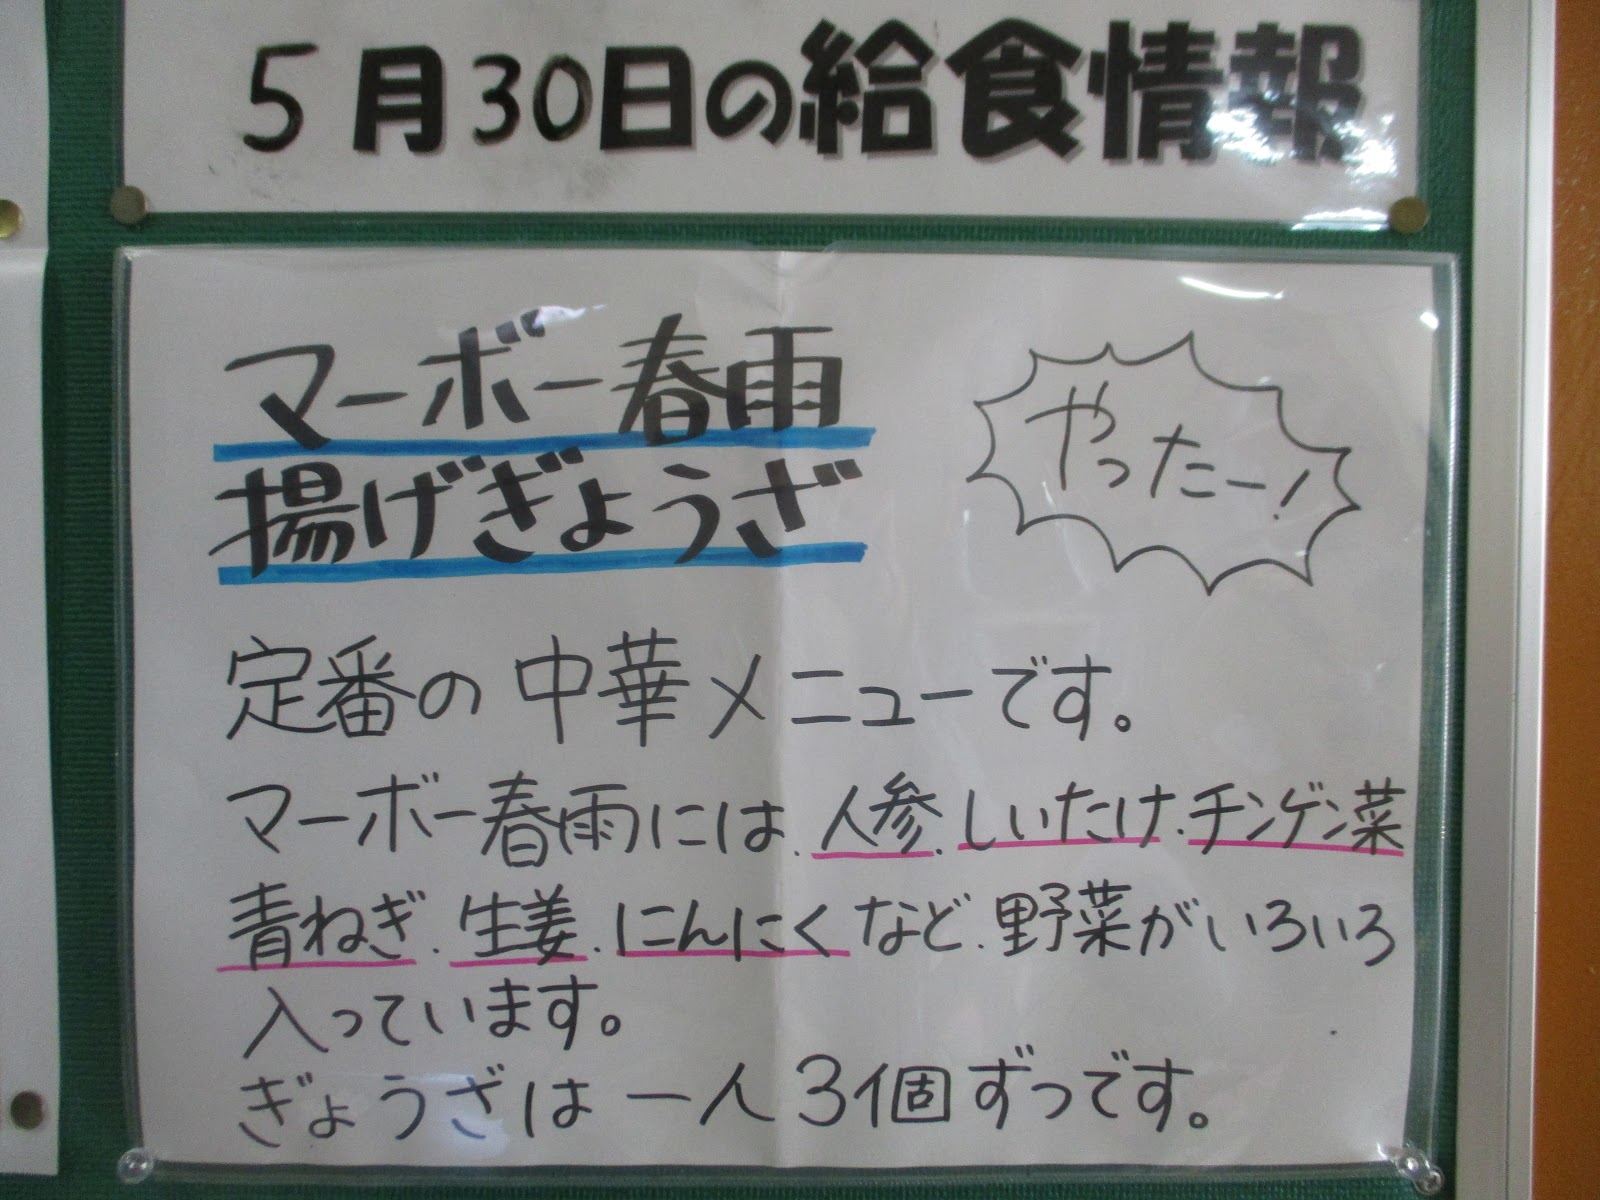 5月30日の給食情報
マーボー春雨
揚げぎょうざ
やったー!
定番の中華メニューです。
マーボー春雨には、人参、しいたけ、チンゲン菜
青ねぎ、生姜、にんにくなど、野菜がいろいろ
入っています。
ぎょうざは一人3個ずつです。